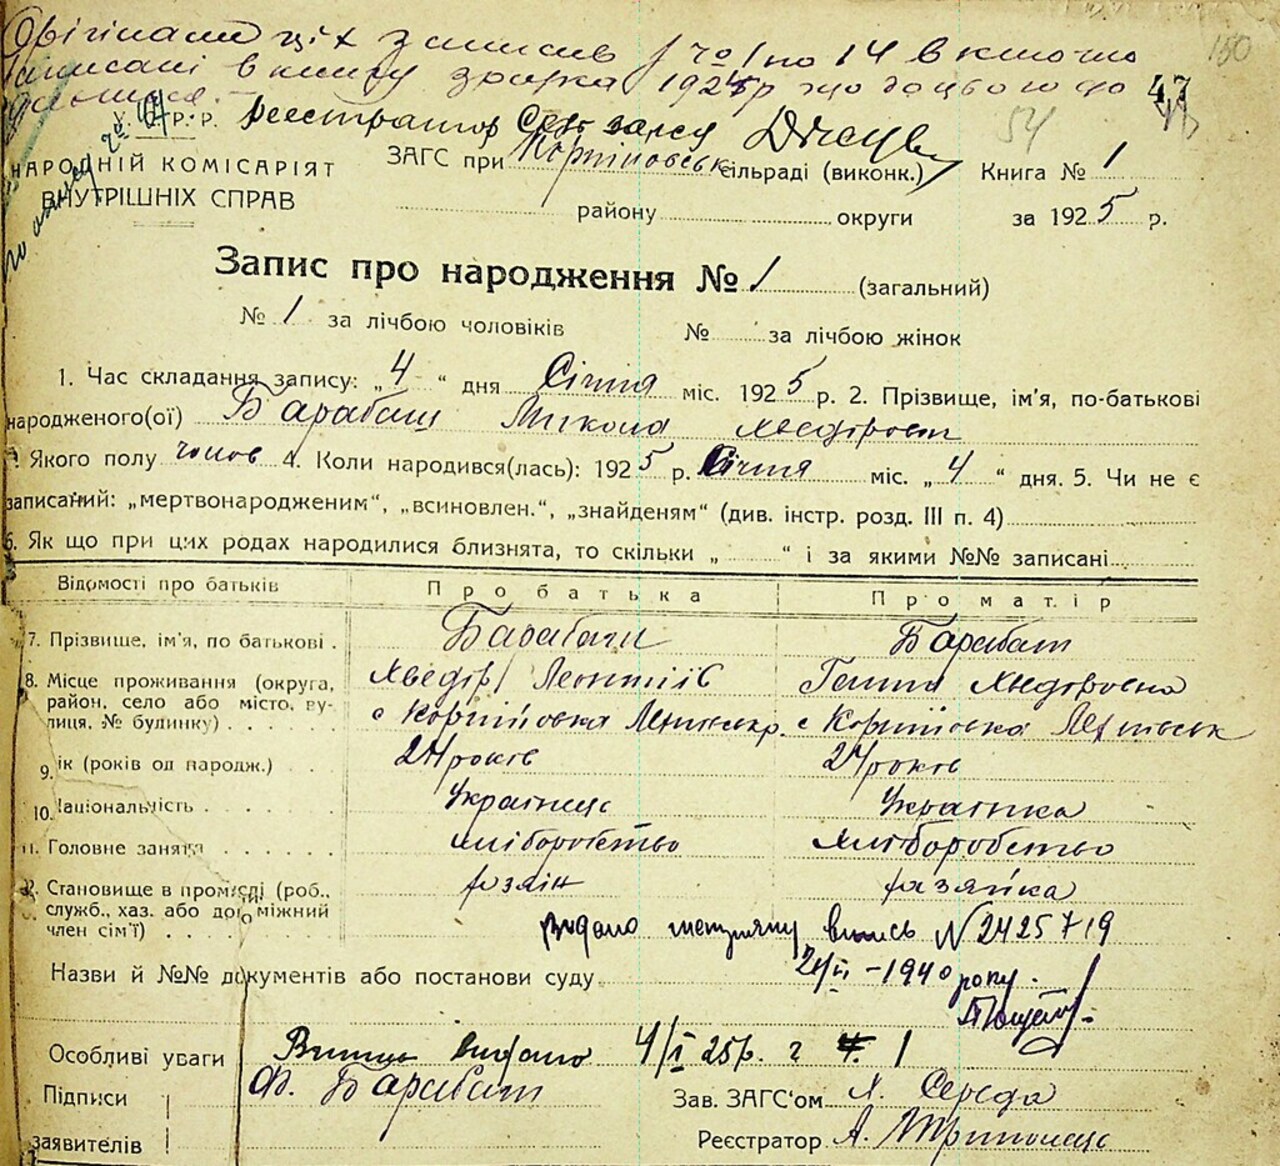 Орігінали ціх записів з № 1 по 14 включно
записані в книгу 1924 р що до
Реєстратор
150
47
54
У. С. Р. Р.
НАРОДНІЙ КОМІСАРІЯТ
ВНУТРІШНІХ СПРАВ
ЗАГС при сільраді (виконк.) Книга № 1
району округи за 1925 р.
Запис про народження № 1 (загальний)
№ 1 за лічбою чоловіків № за лічбою жінок
1. Час складання запису: „4“ дня Січня міс. 1925 р. 2. Прізвище, ім'я, по-батькові
народженого(ої) Барабаш Микола Хведірович
3. Якого полу чолов 4. Коли народився(лась): 1925 р. Січня міс. „4“ дня. 5. Чи не є
записаний: „мертвонародженим“, „всиновлен.“, „знайденям“ (див. інстр. розд. III п. 4)
6. Як що при цих родах народилися близнята, то скільки „ “ і за якими №№ записані
Відомості про батьків Про батька Про матір
7. Прізвище, ім'я, по батькові . Барабаш Барабаш
Хведір Леонтіїв Ганна Хведоровна
8. Місце проживання (округа,
район, село або місто, ву-
лиця, № будинку) . . . .
9. ік (років од народж.) . . 24 років 24 років
10. Національність . . . . . Українець Українка
11. Головне заняття . . . . . хліборобство хліборобство
12. Становище в промислі (роб., хазяін хазяйка
служб., хаз. або допоміжний
член сім'ї) . . . .
видано випись N 2425719
Назви й №№ документів або постанови суду 1940 року.
Особливі уваги Випис видано 4/I 25р. № 1
Підписи Ф. Барабаш Зав. ЗАГС'ом Середа
заявителів Реєстратор А.